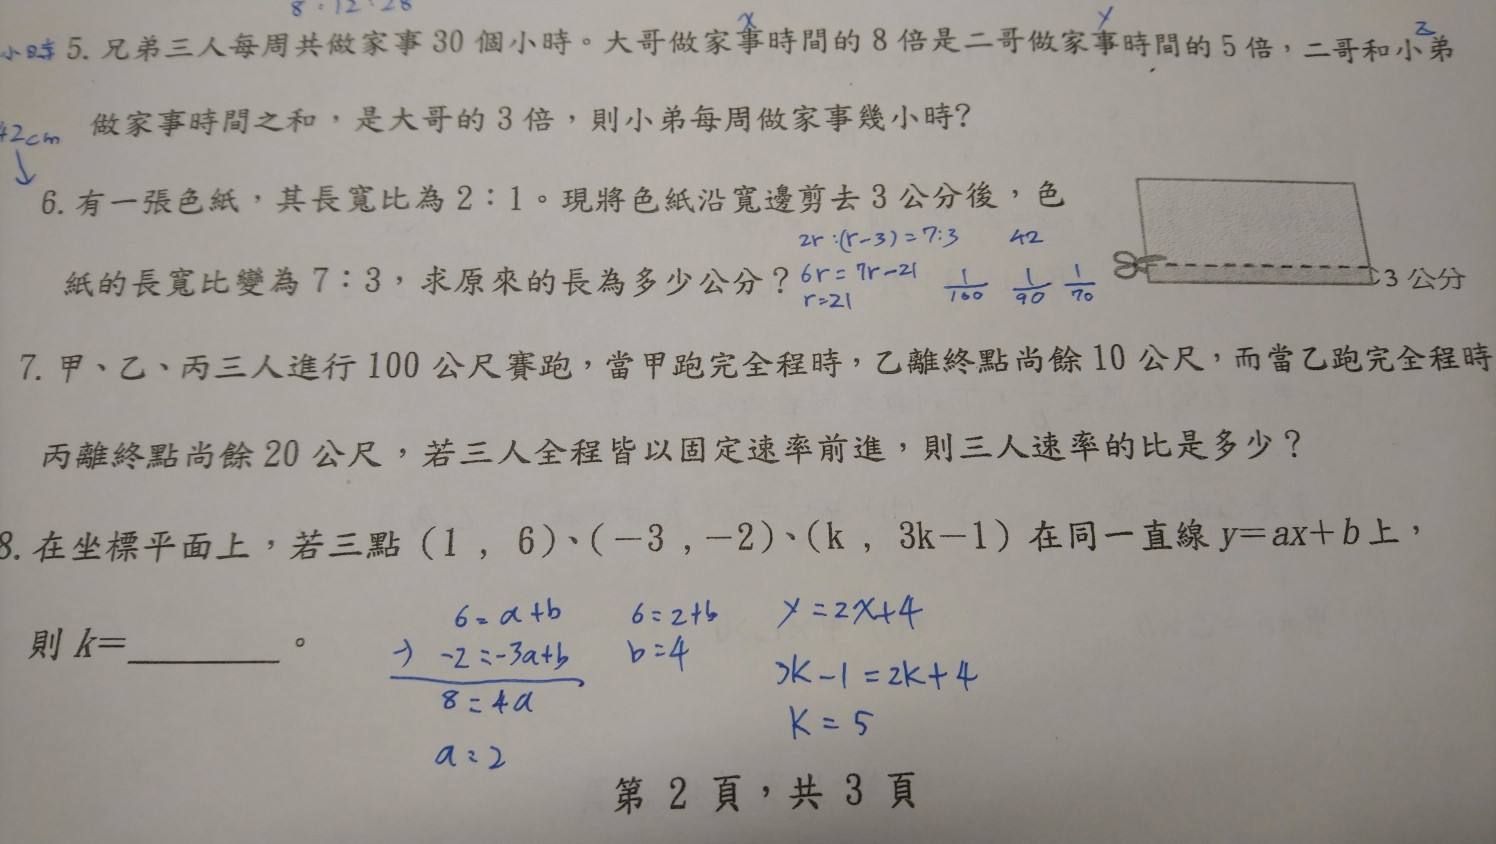 8:12:28
x y z
小時 5. 兄弟三人每周共做家事 30 個小時。大哥做家事時間的 8 倍是二哥做家事時間的 5 倍，二哥和小弟
做家事時間之和，是大哥的 3 倍，則小弟每周做家事幾小時?
42cm
6. 有一張色紙，其長寬比為 2：1。現將色紙沿寬邊剪去 3 公分後，色
2r:(r-3)=7:3 42
紙的長寬比變為 7：3，求原來的長為多少公分？
6r=7r-21
r=21
1/100 1/90 1/70
3 公分
7. 甲、乙、丙三人進行 100 公尺賽跑，當甲跑完全程時，乙離終點尚餘 10 公尺，而當乙跑完全程時
丙離終點尚餘 20 公尺，若三人全程皆以固定速率前進，則三人速率的比是多少？
8. 在坐標平面上，若三點（1，6）、（－3，－2）、（k，3k－1）在同一直線 y=ax+b 上，
則 k=________。
6=a+b 6=2+b y=2x+4
-) -2=-3a+b b=4
8=4a 3k-1=2k+4
a=2 k=5
第 2 頁，共 3 頁